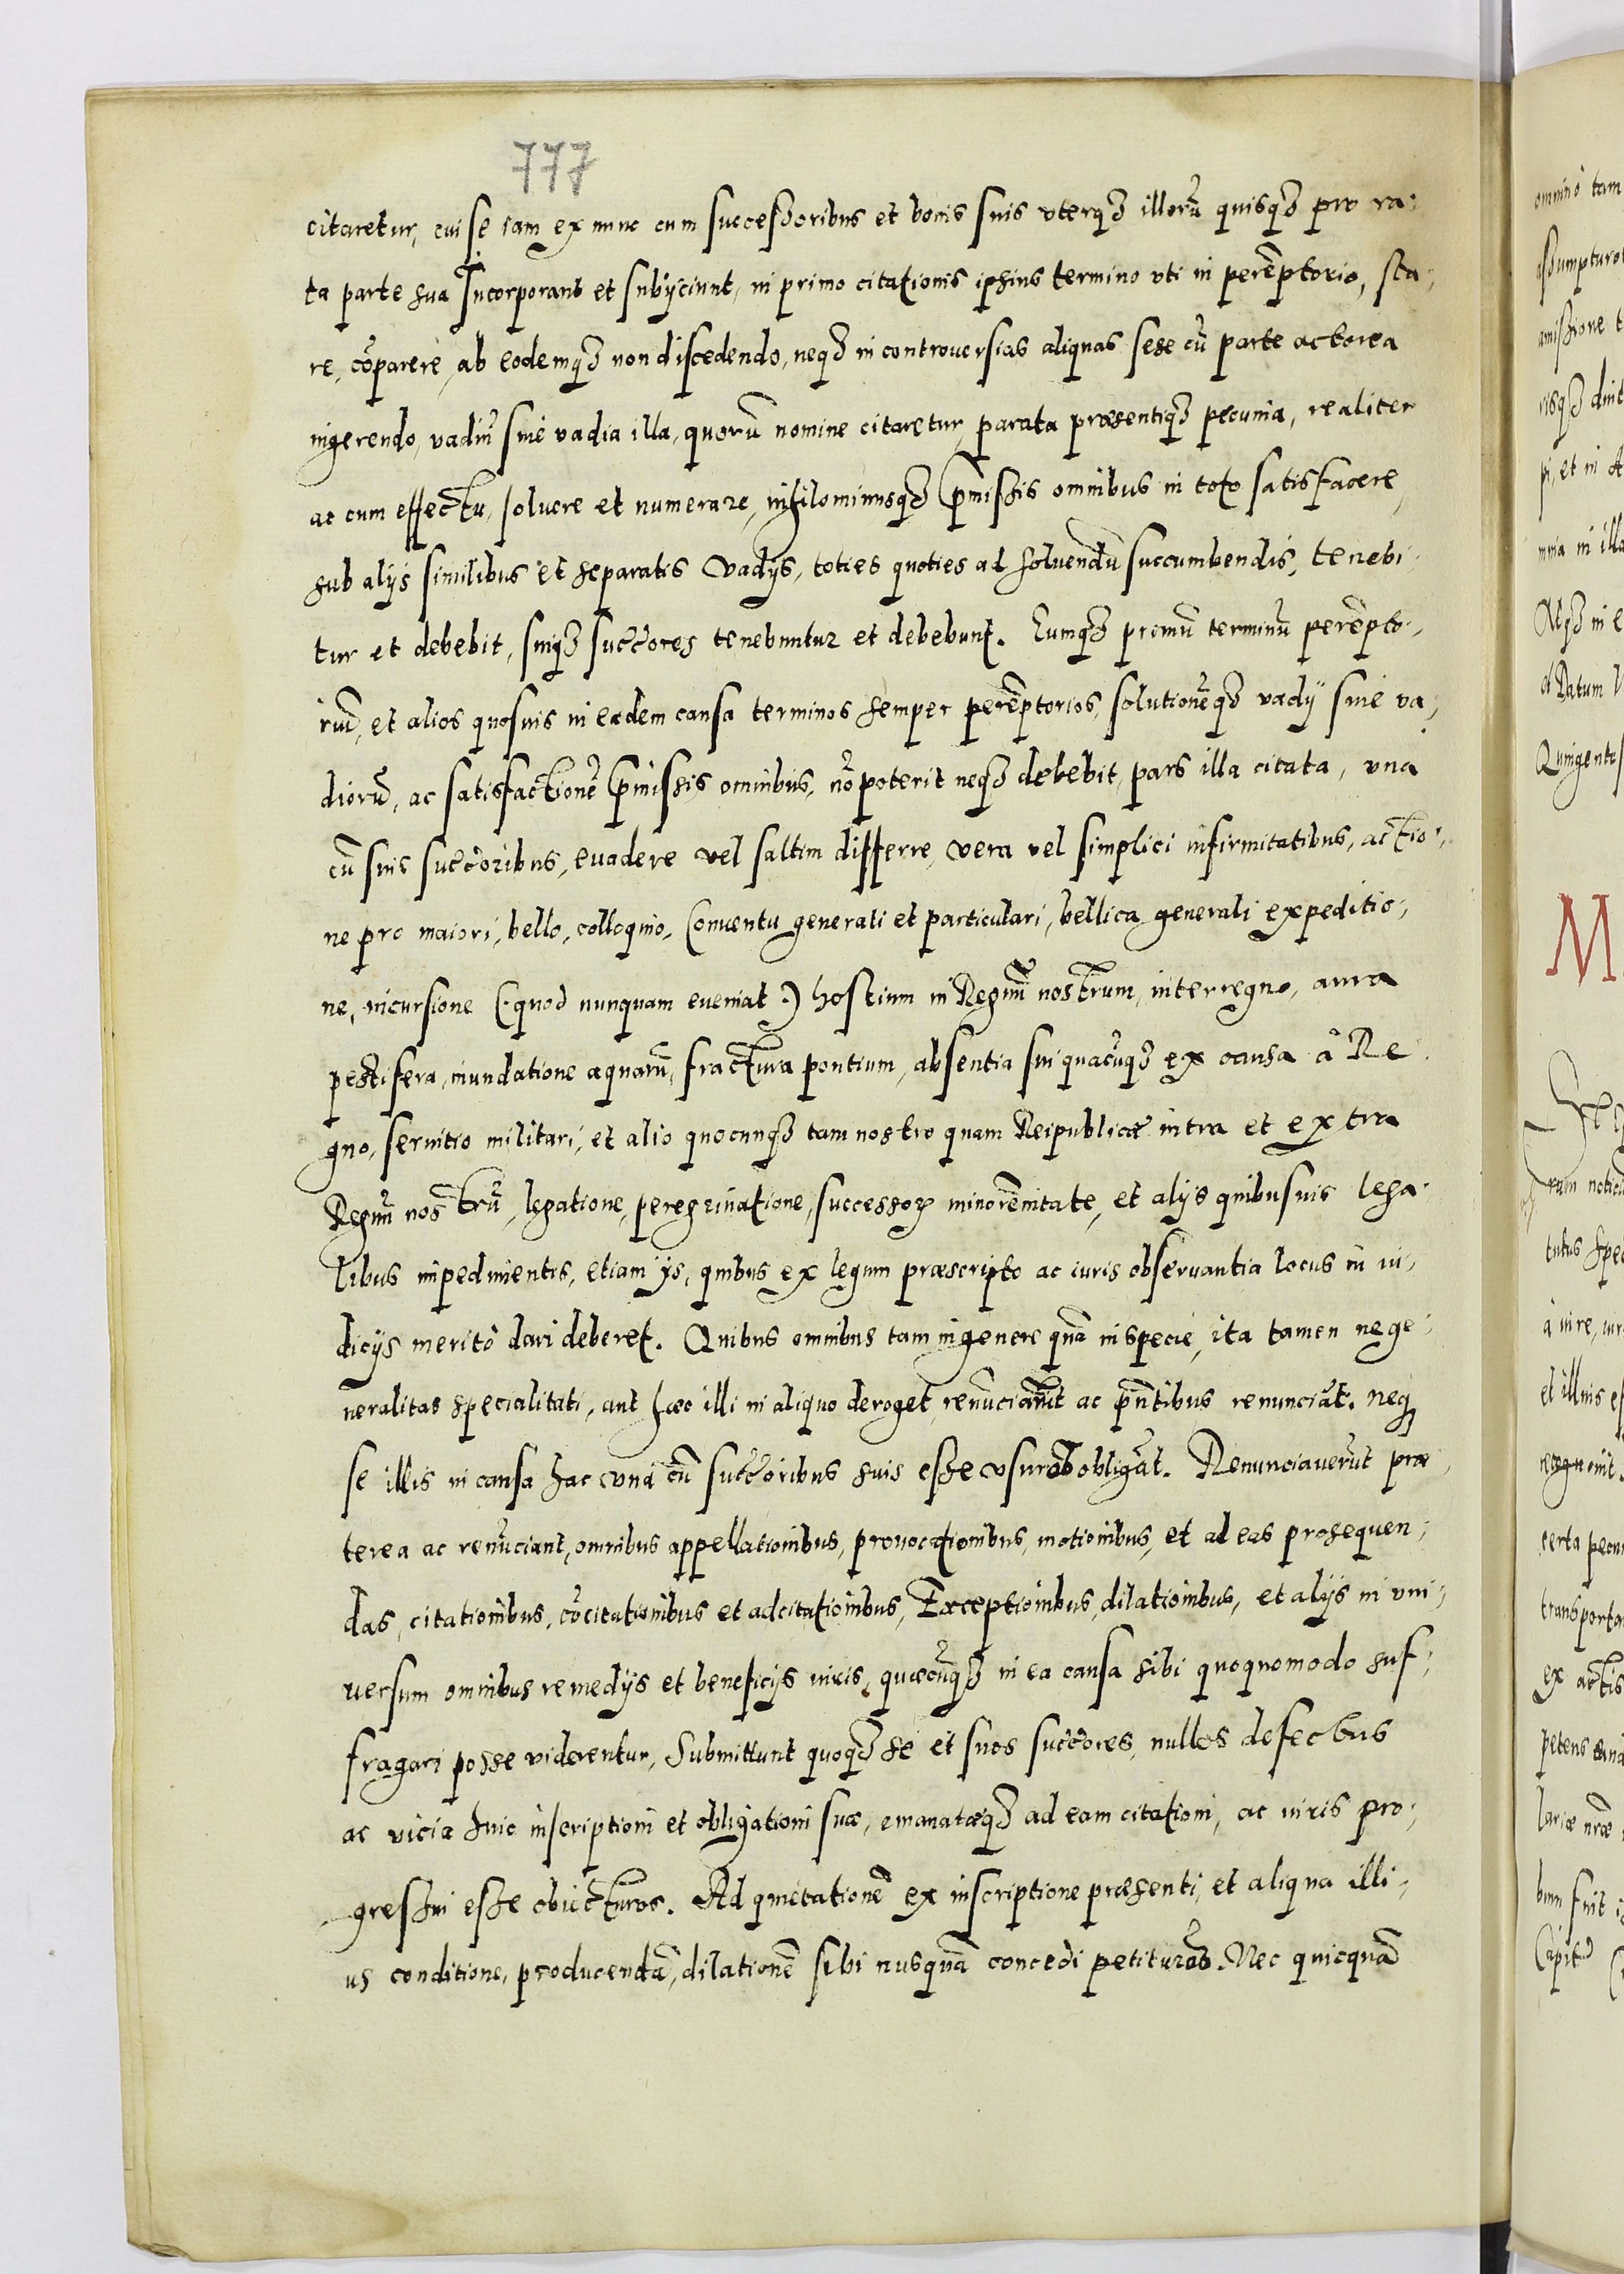 777
citaretur, cui se iam ex nunc cum successoribus et bonis suis uterq3 illorũ quisq3 pro ra-
ta parte sua Incorporant et subijciunt, in primo citationis ipsius termino uti in perẽptorio, sta-
re, cõparere, ab eodemq3 non discedendo, neq3 in controuersias aliquas sese cũ parte actorea
ingerendo, uadiũ siue uadia illa, quorũ nomine citaretur, parata præsentiq3 pecunia, realiter
ac cum effectu, soluere et numerare, nihilominusq3 p̃missis omnibus in toto satisfacere,
sub alijs similibus et separatis vadijs, toties quoties ad soluendũ succumbendis, tenebi-
tur et debebit, suiq3 succ̃ores tenebuntur et debebunt. Eumq3 primũ terminũ perẽpto-
riũ, et alios quosuis in eadem causa terminos semper perẽptorios, solutionẽq3 uadij siue ua-
diorũ, ac satisfactionẽ p̃missis omnibus, nõ poterit neq3 debebit, pars illa citata, unà
cũ suis succ̃oribus, euadere vel saltim differre, vera vel simplici infirmitatibus, actio-
ne pro maiori, bello, colloquio, Conuentu generali et particulari, bellica generali expeditio-
ne, incursione (: quod nunquam eueniat :) hostium in Regnũ nostrum, interregno, aura
pestifera, inundatione aquarũ, fractura pontium, absentia sui quacũq3 ex causa à Re-
gno, seruitio militari, et alio quocunq3 tam nostro quam Reipublicæ intra et extra
Regnũ nostrũ, legatione, peregrinatione, successorꝝ minorẽnitate, et alijs quibusuis lega-
libus impedimentis, etiam ijs, quibus ex legum præscripto ac iuris obseruantia locus in iu-
dicijs meritò dari deberet. Quibus omnibus tam in genere quã in specie, ita tamen ne ge-
neralitas specialitati, aut hæc illi in aliquo deroget, renũciarũt ac p̃ntibus renunciãt. neq3
se illis in causa hac unà cũ succ̃oribus suis esse usuros obligãt. Renunciauerũt præ-
terea ac renũciant, omnibus appellationibus, prouocationibus, motionibus, et ad eas prosequen-
das, citationibus, cõcitationibus et adcitationibus, Exceptionibus, dilationibus, et alijs in uni-
uersum omnibus remedijs et beneficijs iuris, quæcũq3 in ea causa sibi quoquomodo suf-
fragari posse viderentur, Submittunt quoq3 se et suos succ̃ores, nullos defectus
ac vicia huic inscriptioni et obligationi suæ, emanatæq3 ad eam citationi, ac iuris pro-
gressui esse obiecturos. Ad quietationẽ ex inscriptione præsenti, et aliqua illi-
us conditione, producendã, dilationẽ sibi nusquã concedi petituros. Nec quicquã
omnino tam
pi, et in
mnia in illa
Atq3 in e
et Datum
Quingentes
M
tutus spe
à iure, iur
et illius
recognouit
certa pecun
transporta
ex actis
petens
lariæ nr̃æ
bum fuit
Capit